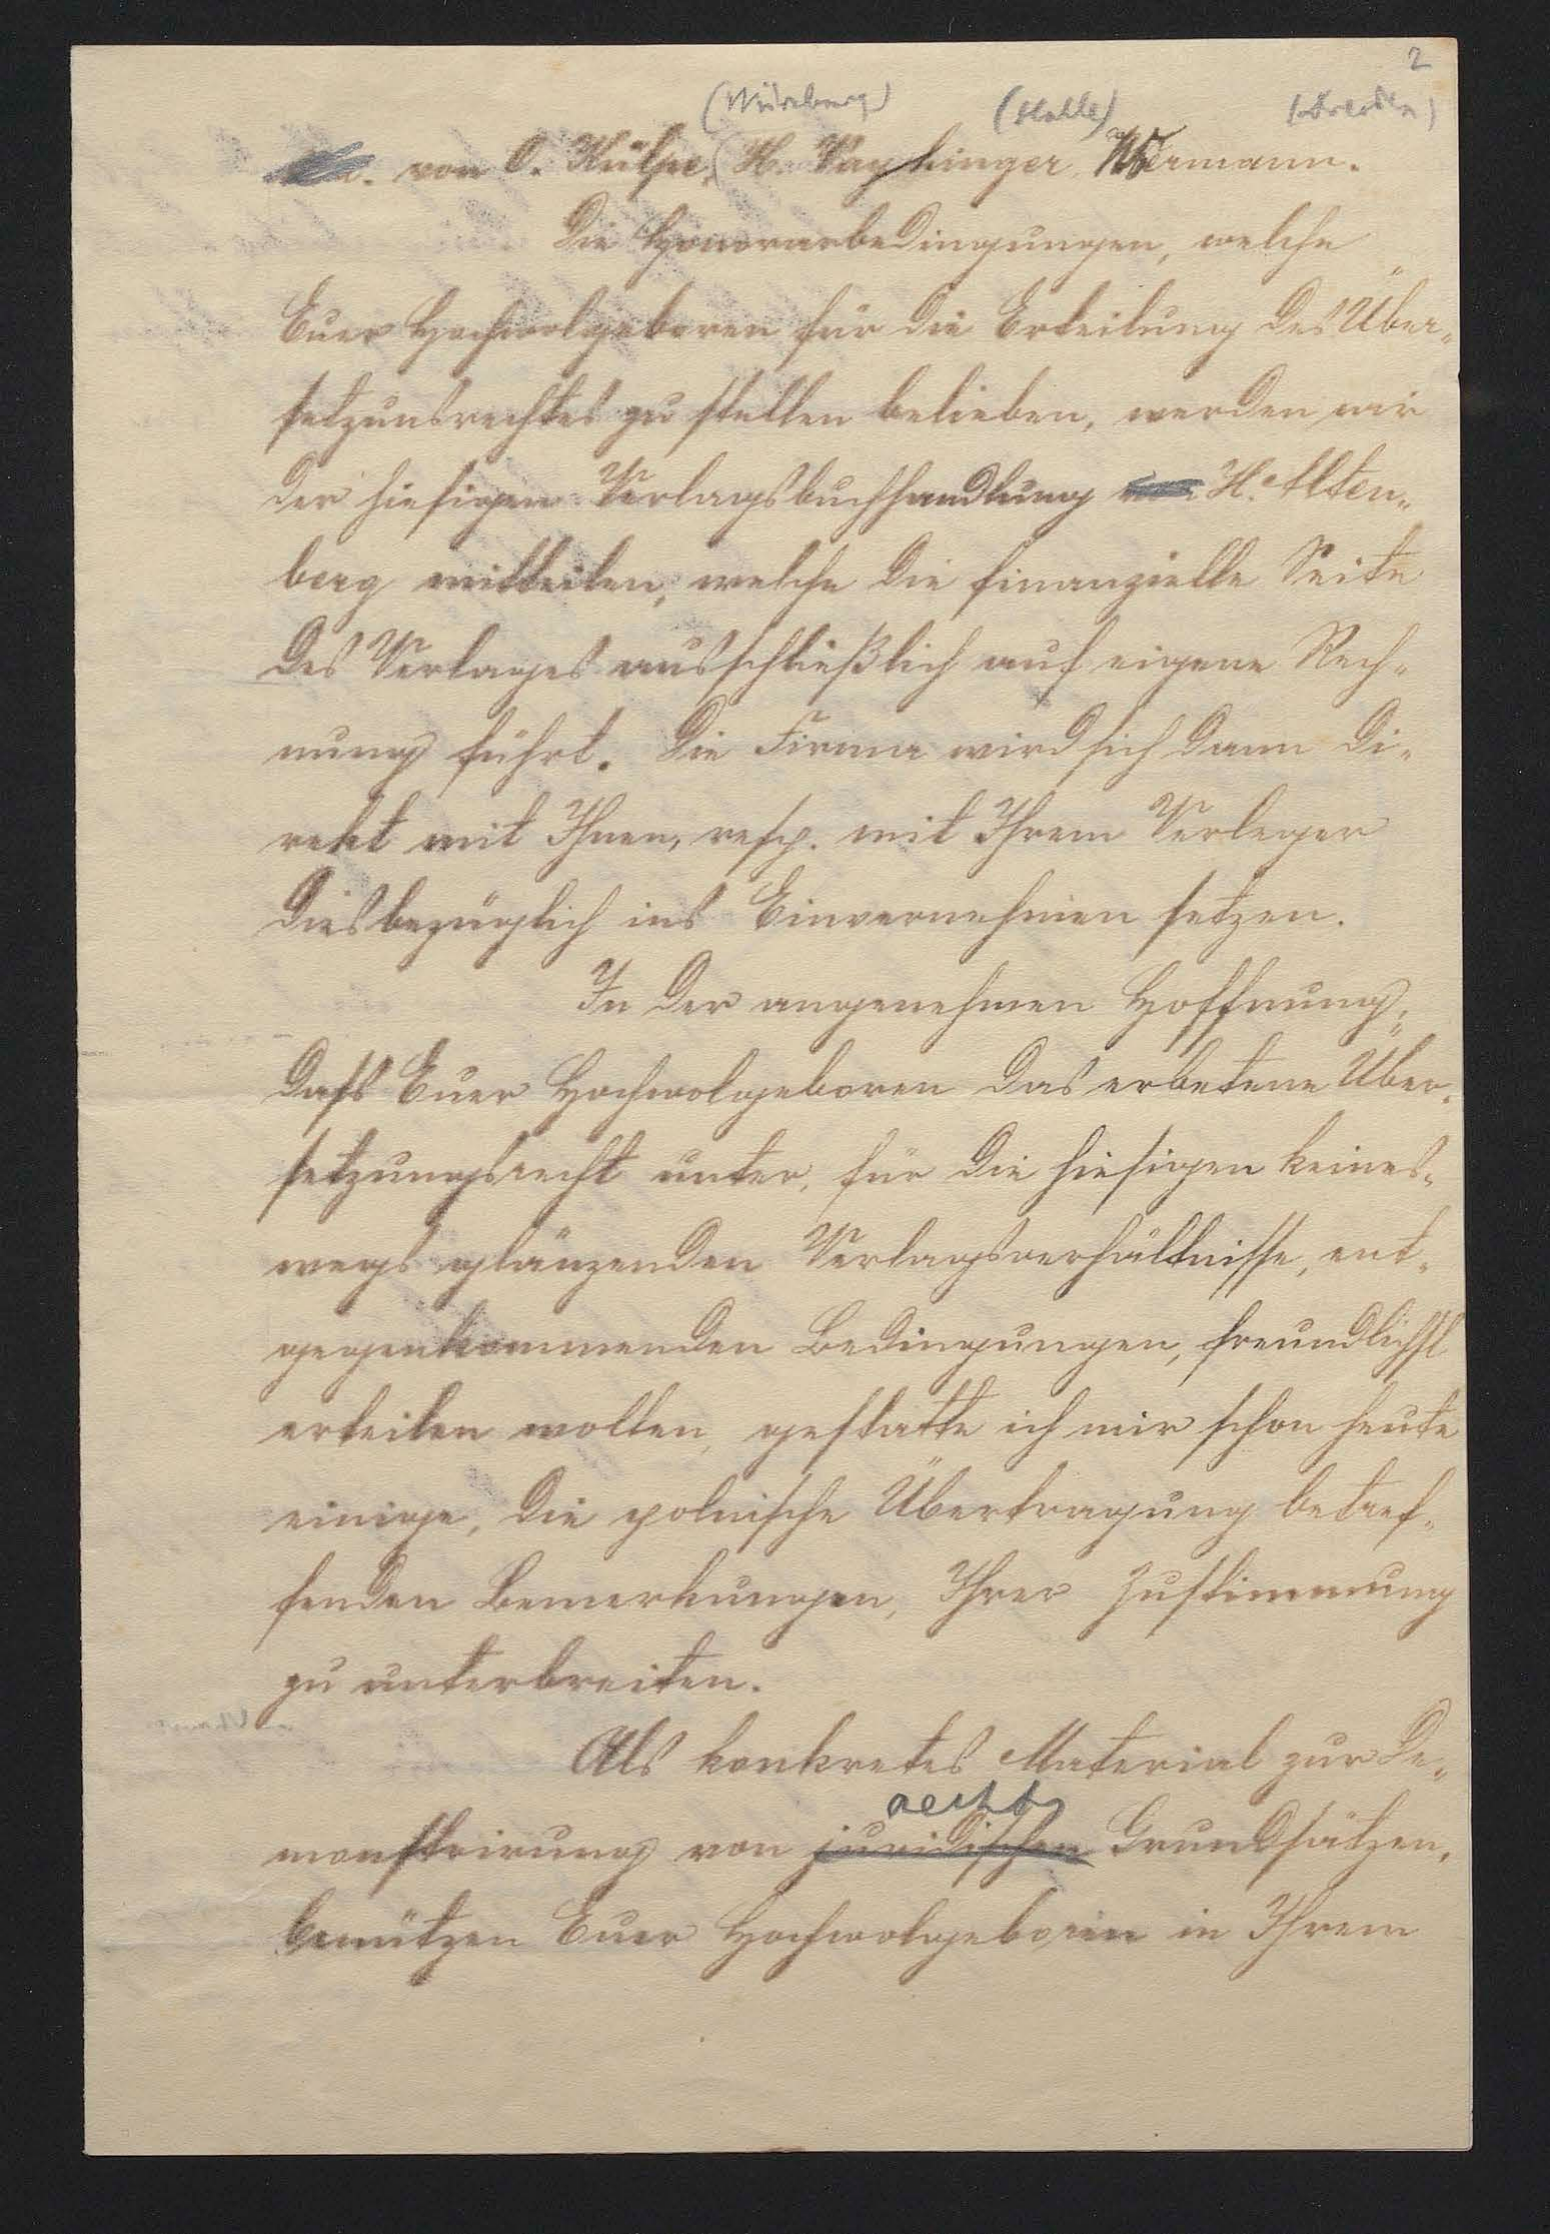 2
(Würzburg) (Halle) (Dresden)
von O. Külpe, H. Vayhinger, Woermann.
Die Honorarbedingungen, welche
Euer Hochwolgeboren für die Erteilung des Über„
setzunsrechtes zu stellen belieben, werden wir
der hiesigen Verlagsbuchhandlung H. Alten„
berg mitteilen, welche die finanzielle Seite
des Verlages ausschließlich auf eigene Rech„
nung führt. Die Firma wird sich dann di„
rekt mit Ihnen, resp. mit Ihrem Verleger
diesbezüglich ins Einvernehmen setzen.
In der angenehmen Hoffnung,
dass Euer Hochwolgeboren das erbetene Über„
setzungsrecht unter, für die hiesigen keines„
wegs glänzenden Verlagsverhältnisse, ent„
gegenkommenden Bedingungen, freundlichst
erteilen wollen, gestatte ich mir schon heute
einige, die polnische Übertragung betref„
fenden Bemerkungen, Ihrer Zustimmung
zu unterbreiten.
Als konkretes Material zur De„
rechts
monstrirung von juridischen Grundsätzen,
benützen Euer Hochwolgeboren in Ihrem